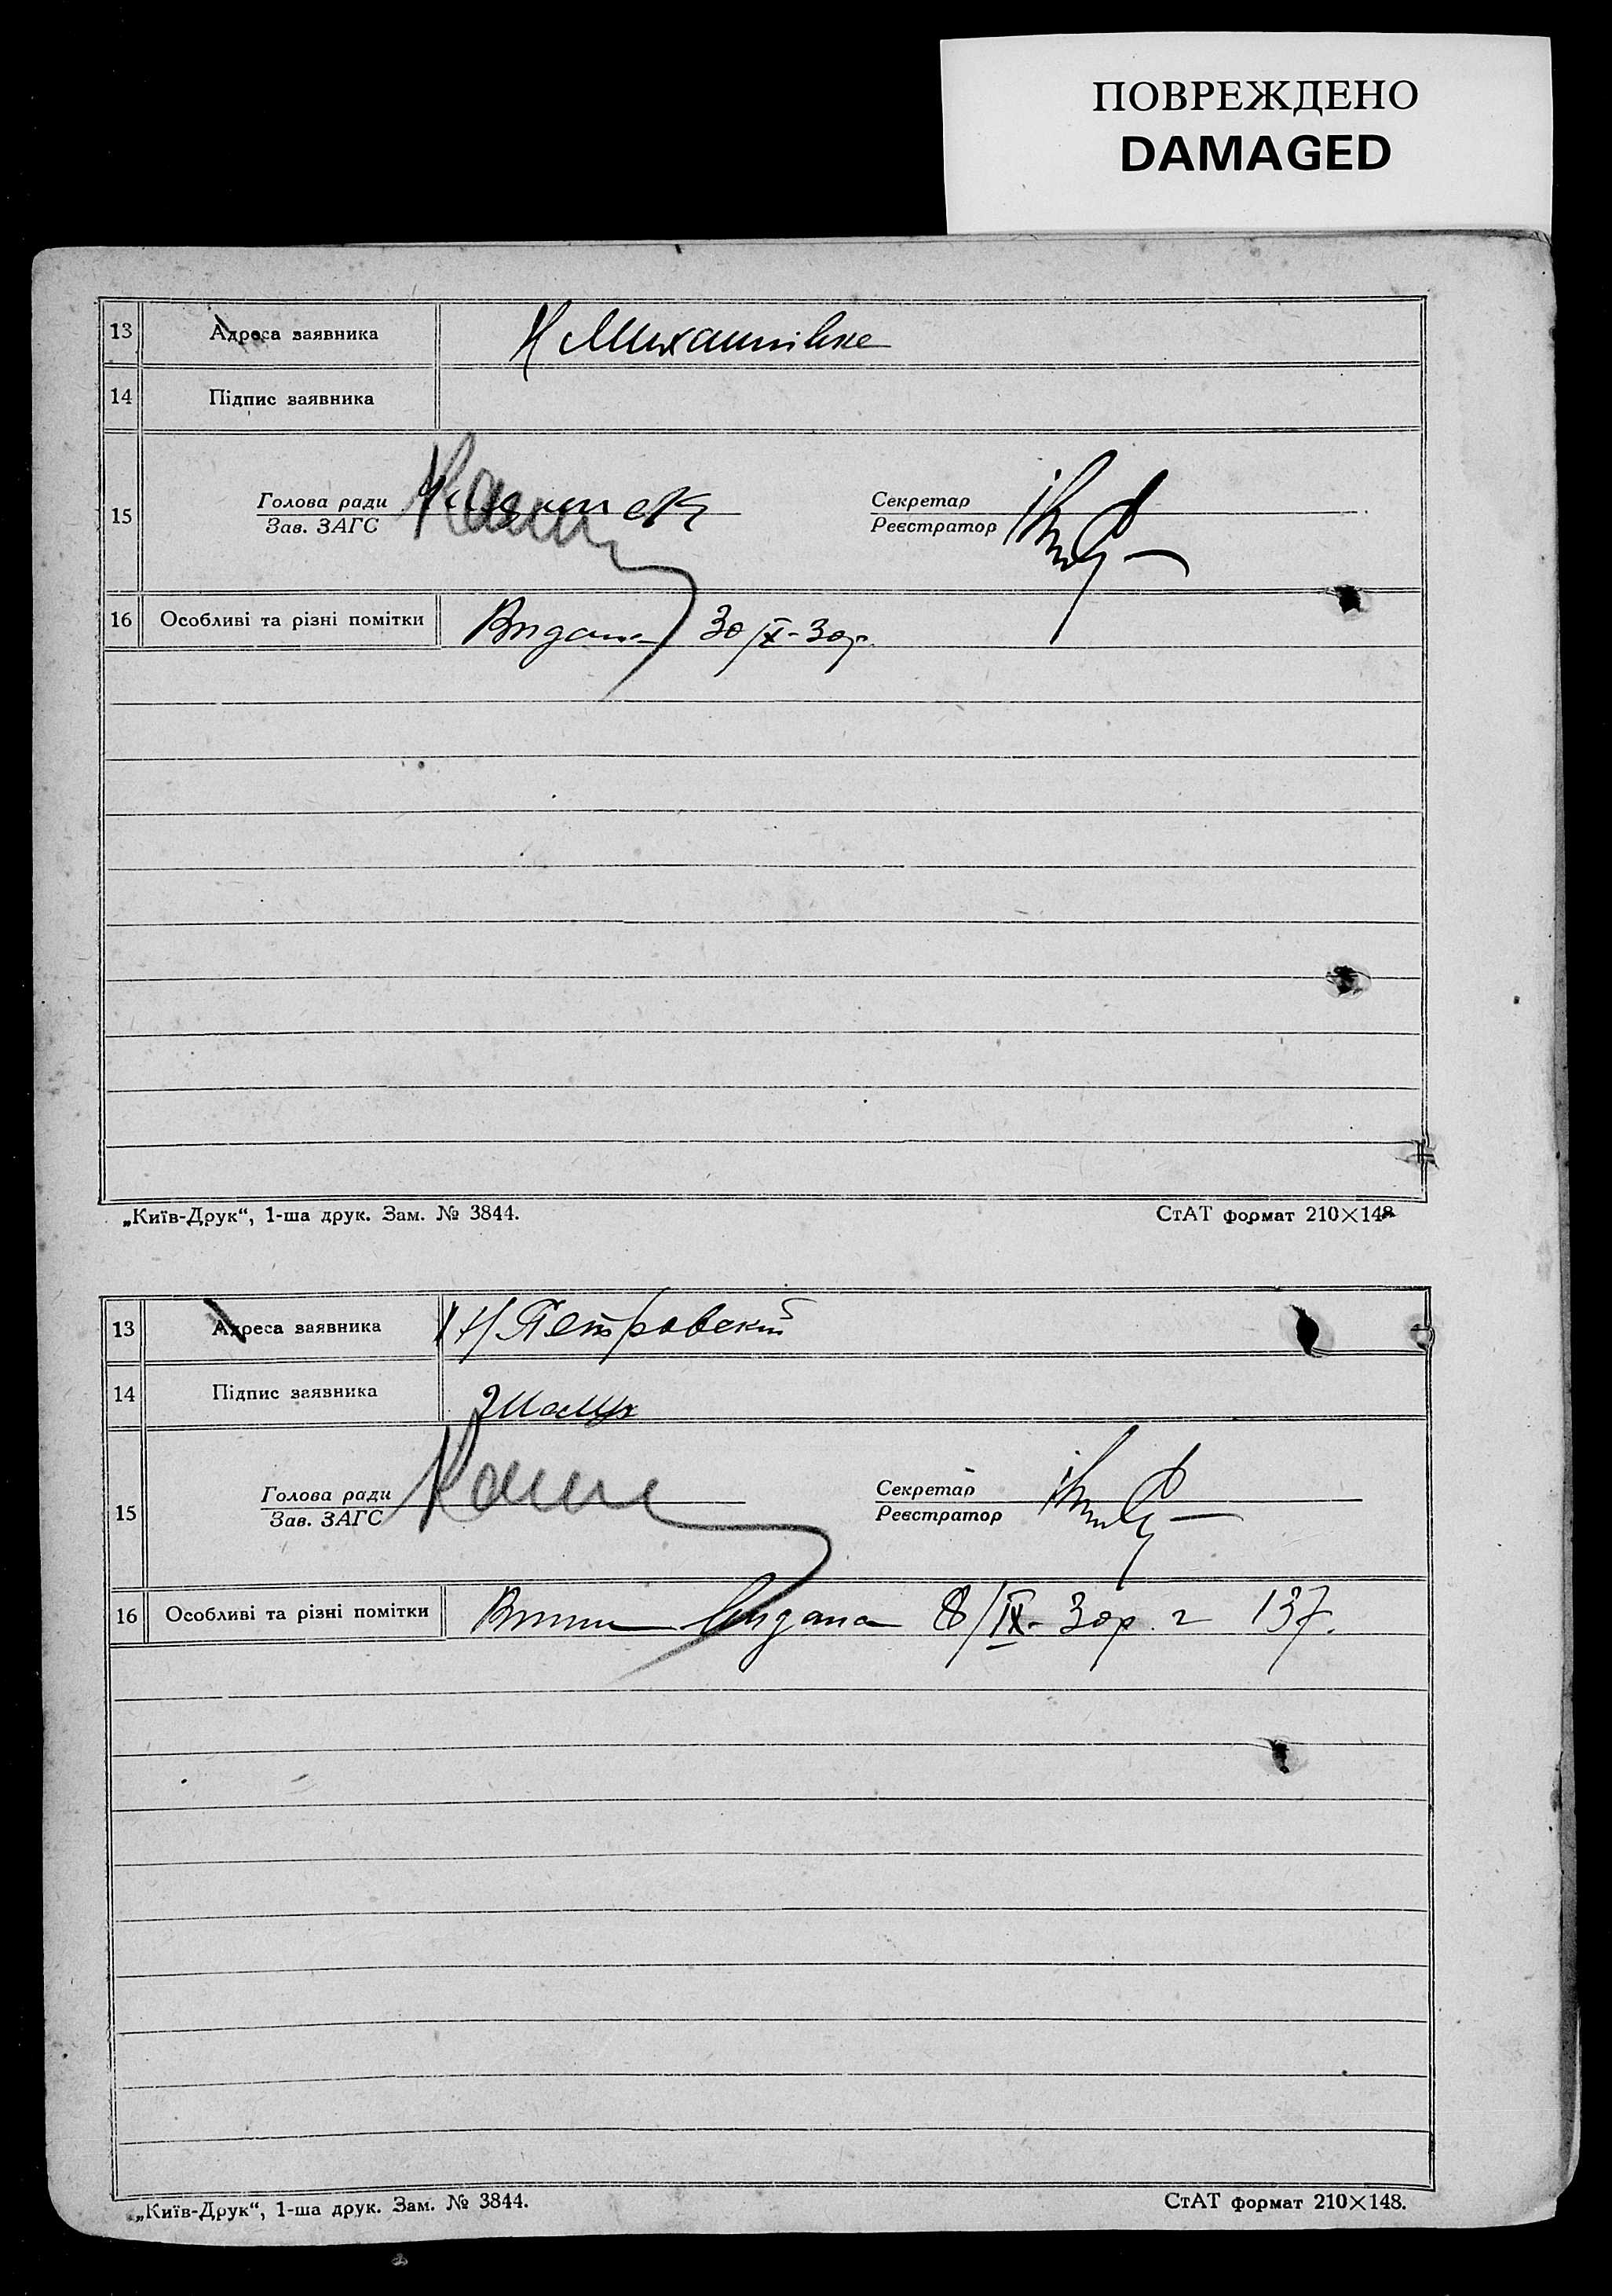 ПОВРЕЖДЕНО
DAMAGED
13 Адреса заявника Н Михайлівка
14 Підпис заявника
15 Голова ради Секретар
Зав. ЗАГС Реєстратор
16 Особливі та різні помітки Видана 30/X-30р.
„Київ-Друк“, 1-ша друк. Зам. № 3844. СтАТ формат 210×148
13 Адреса заявника Н/Петровский
14 Підпис заявника
15 Голова ради Секретар
Зав. ЗАГС Реєстратор
16 Особливі та різні помітки видана 8/IX-30р. 137.
„Київ-Друк“, 1-ша друк. Зам. № 3844. СтАТ формат 210×148.